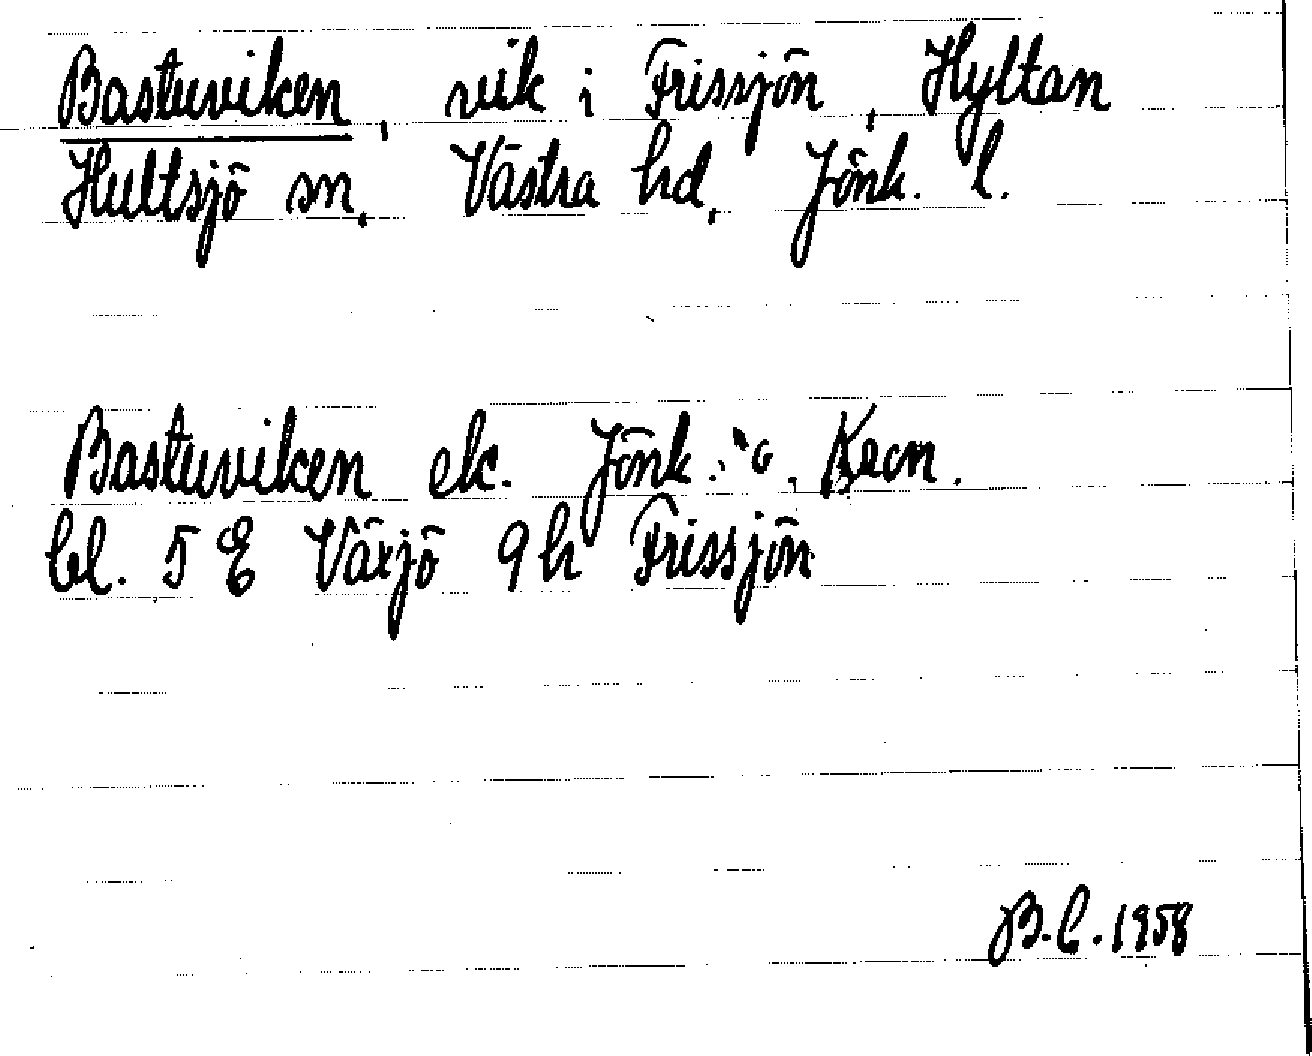 Bastuviken, vik i Frissjön, Hyltan
Hultsjö sn, Västra hd, Jönk. l.
Bastuviken ek. Jönk. o. Kron.
bl. 5 E Växjö 9 h Frissjön
B.C. 1958